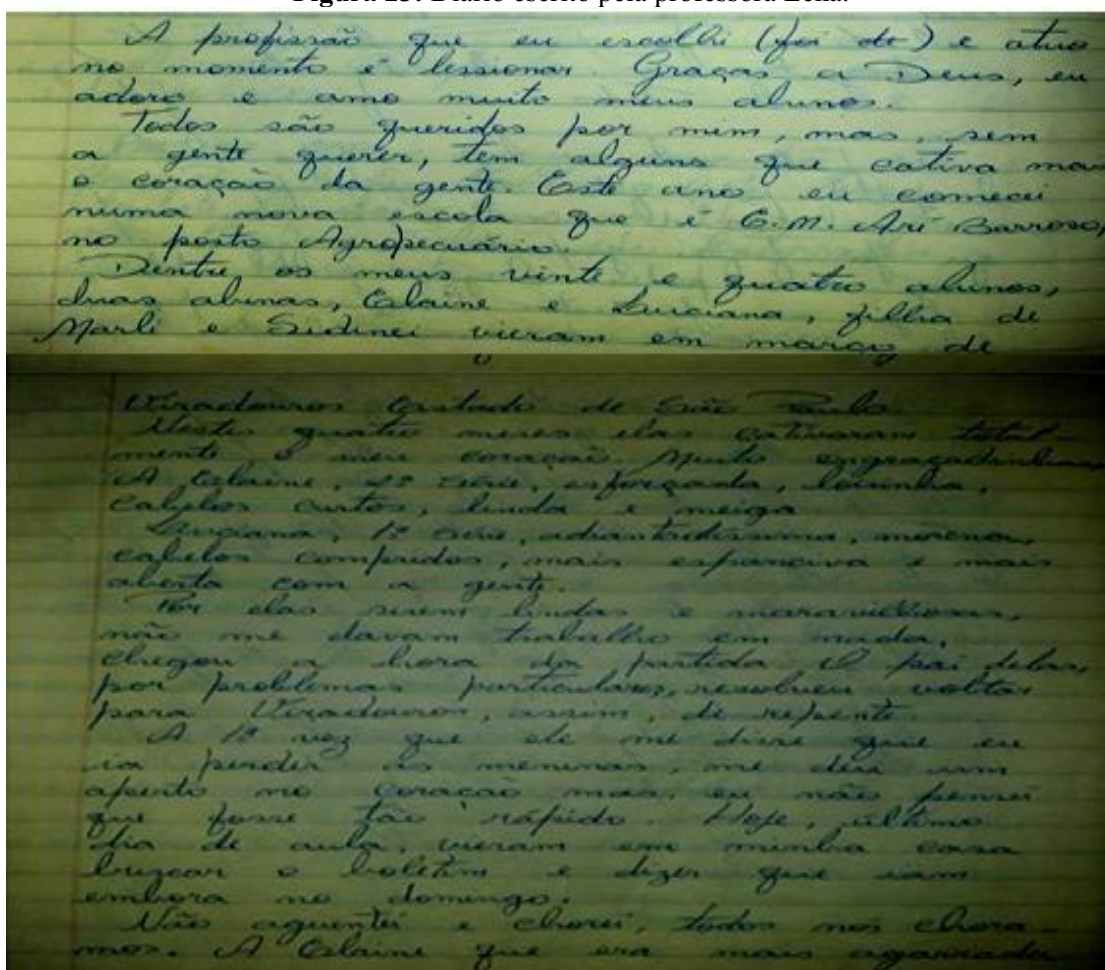 Figura 15: Diário escrito pela professora Lena.
A profissão que eu escolhi (foi de) e atuo
no momento é lessionar. Graças a Deus, eu
adoro e amo muito meus alunos.
Todos são queridos por mim, mas, sem
a gente querer, tem alguns que cativa mas
o coração da gente. Este ano eu comecei
numa nova escola que é E.M. Ari Barroso,
no posto Agropecuário.
Dentre os meus vinte e quatro alunos,
duas alunas, Elaine e Luciana, filha de
Marli e Sidinei vieram em março de
Viradouros Estado de São Paulo.
Nestes quatro meses elas cativaram total-
mente o meu coração. Muito engraçadinhas,
A Elaine, 2ª série, esforçada, loirinha,
cabelos curtos, linda e meiga
Luciana, 1ª série, adiantadissima, morena,
cabelos compridos, mais espanciva e mais
aberta com a gente.
Por elas serem lindas e maravilhosas,
não me davam trabalho em nada,
chegou a hora da partida. O pai delas,
por problemas particulares, resolveu voltar
para Viradouros, assim, de repente.
A 1ª vez que ele me disse que eu
ia perder as meninas, me deu um
aperto no coração mas, eu não pensei
que fosse tão rápido. Hoje, último
dia de aula, vieram em minha casa
buzcar o boletim e dizer que iam
embora no domingo.
Não aguentei e chorei, todos nós chora-
mos. A Elaine que era mais agarrada